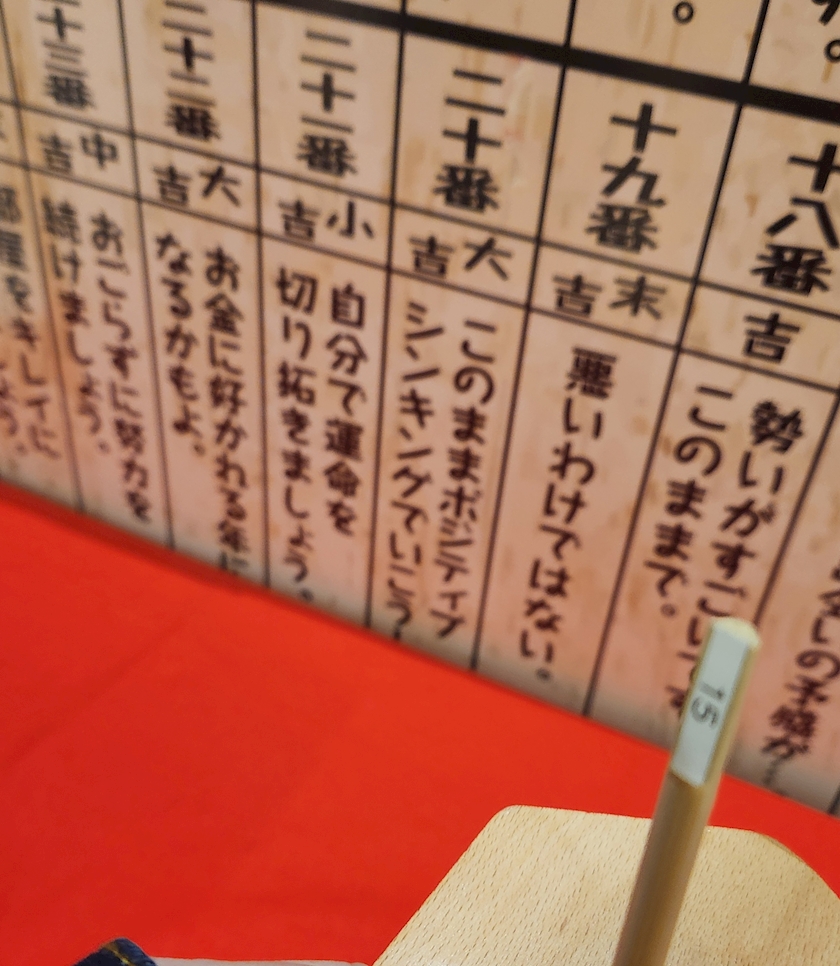 す。
。
十八番
吉
勢いがすごいです
このままで。
十九番
末吉
悪いわけではない。
二十番
大吉
このままポジティブ
シンキングでいこう!
二十一番
小吉
自分で運命を
切り拓きましょう。
二十二番
大吉
お金に好かれる年に
なるかもよ、
二十三番
中吉
おごらずに努力を
続けましょう。
部屋をキレイに
しの予感が…
15